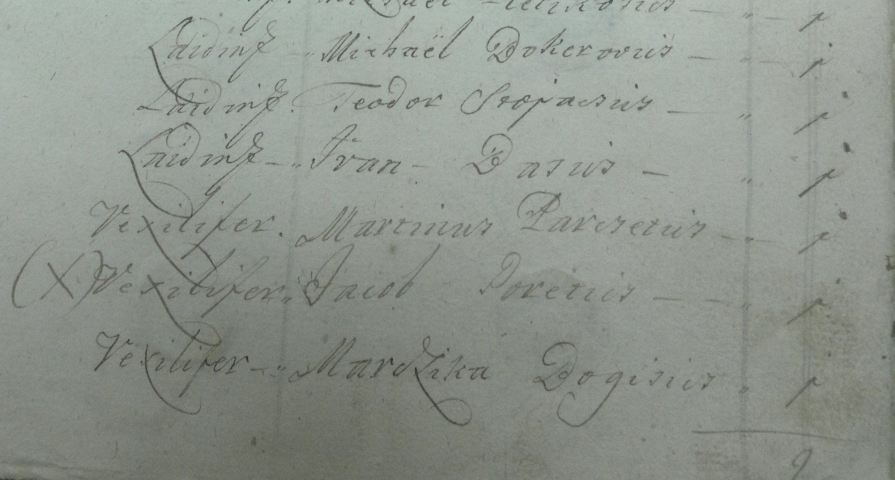 Laidinf - Michaël Dokerovits - " - 1
Laidinf. Teodor Stojasits - " 1
Laidinf - " Ivan - Dasits - " 1
Vexilifer. Martinus Parcsetits - " - 1
(X) Vexilifer " Jacob Poretits - - " 1
Vexilifer - " Mardzika Dogisits " 1
9